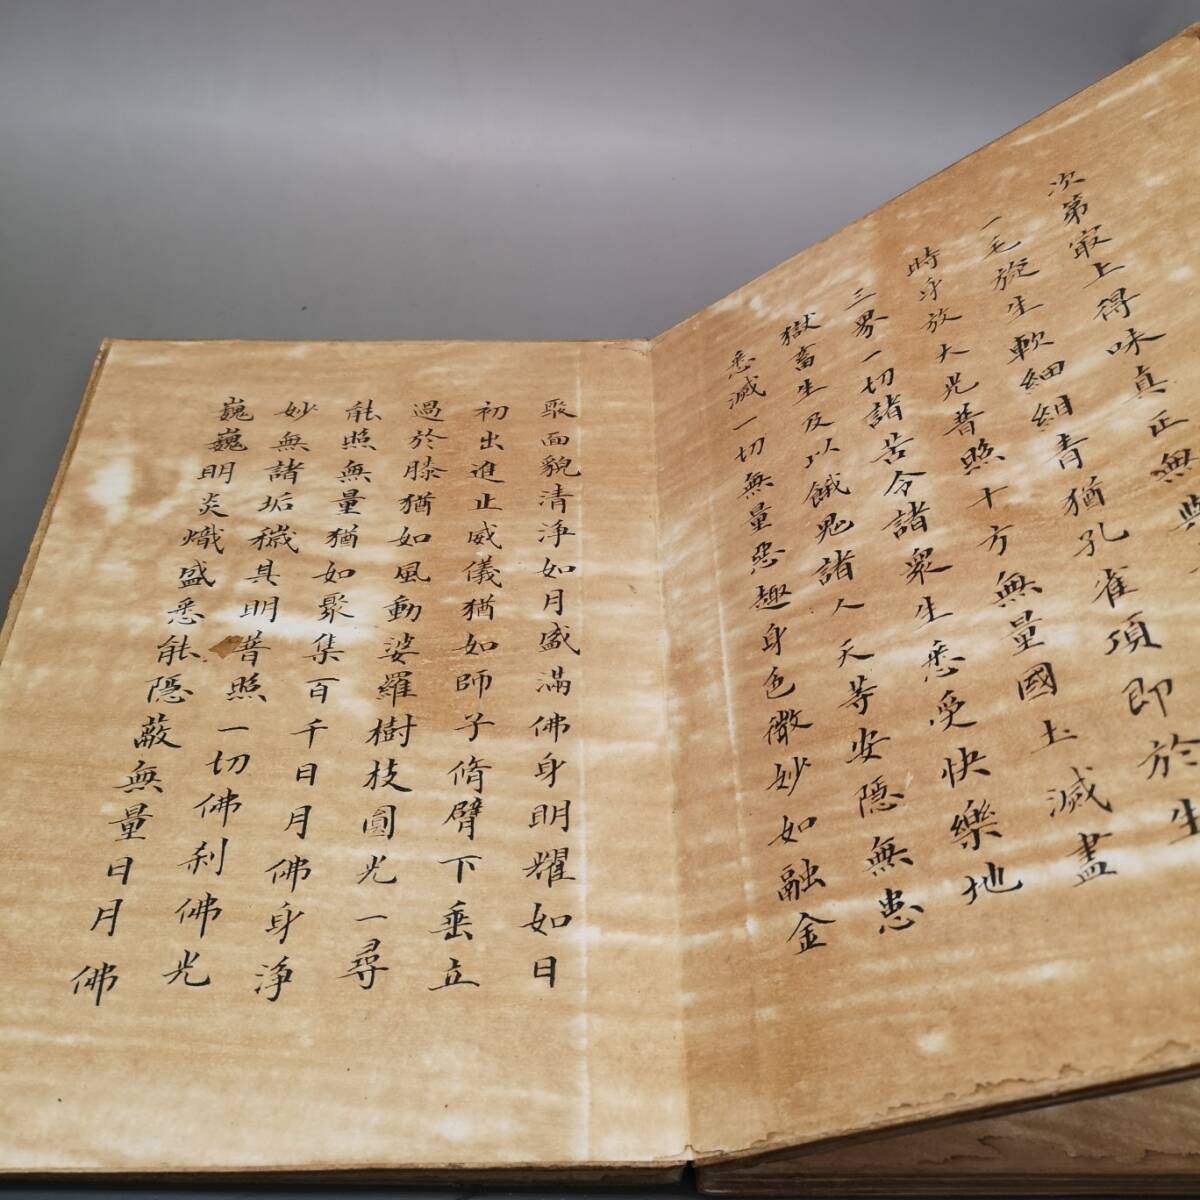 次第最上得味真正無與
一毛旋生軟細紺青猶孔雀項即於生
時身放大光普照十方無量國土滅盡
三界一切諸苦令諸眾生悉受快樂地
獄畜生及以餓鬼諸人天等安隱無患
悉滅一切無量惡趣身色微妙如融金
聚面貌清淨如月盛滿佛身明耀如日
初出進止威儀猶如師子脩臂下垂立
過於膝猶如風動婆羅樹枝圓光一尋
能照無量猶如聚集百千日月佛身淨
妙無諸垢穢其明普照一切佛刹佛光
巍巍明炎熾盛悉能隱蔽無量日月佛